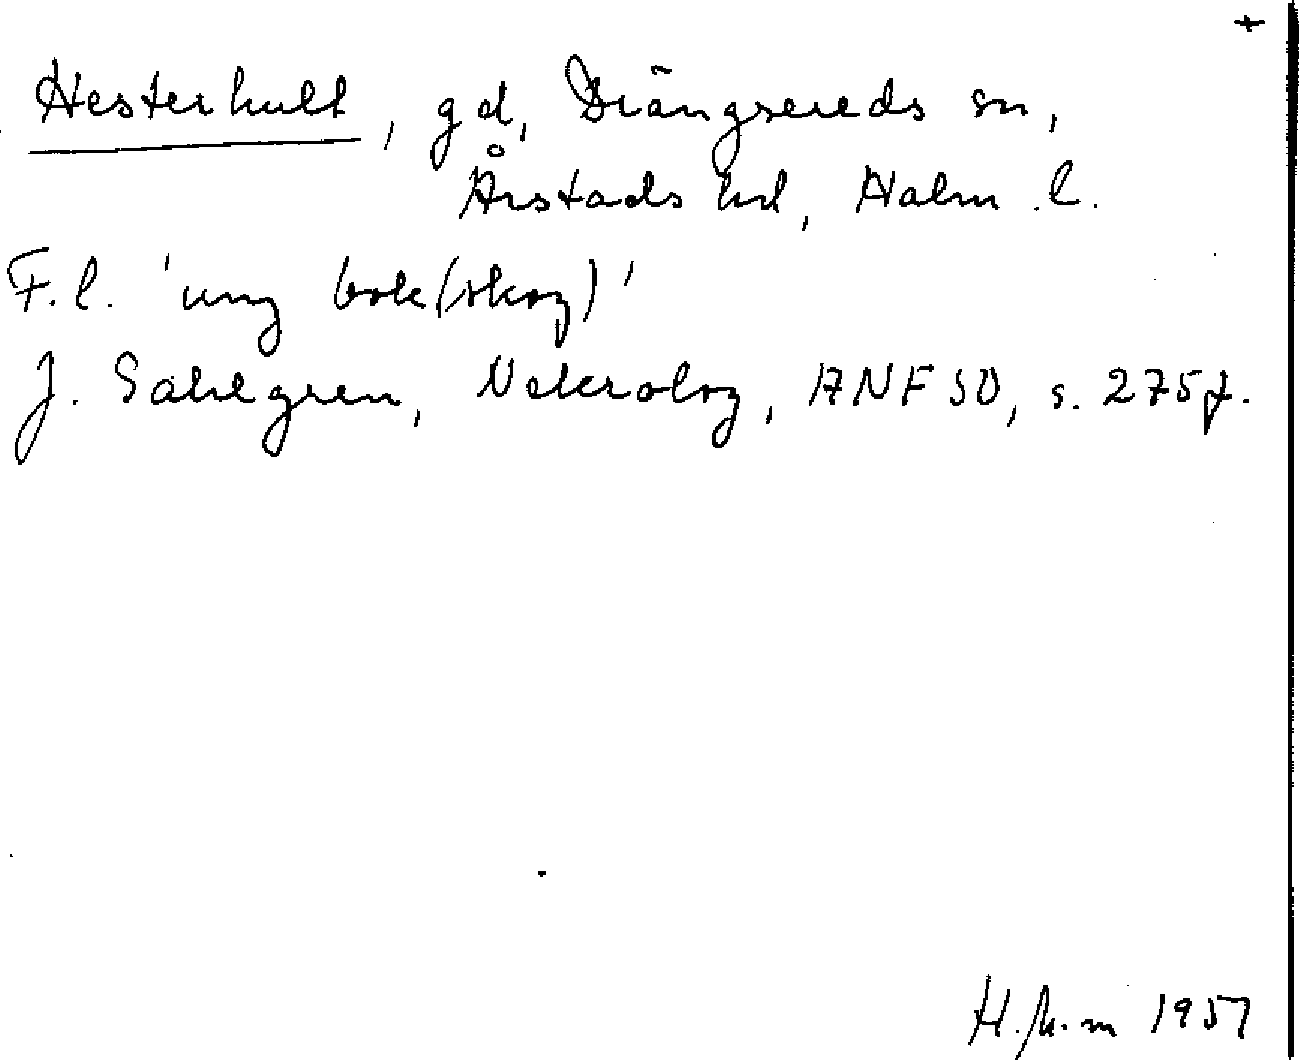 +
Hesterhult, gd, Drängsereds sn,
Årstads hd, Halm. l.
F.l. 'ung bok(skog)'
J. Sahlgren, Nekrolog, ANF 50, s. 275f.
1957